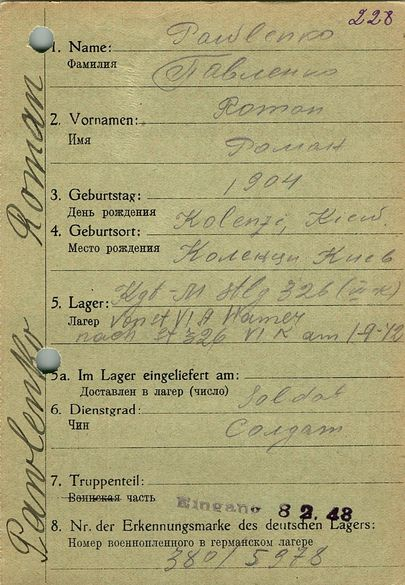 228
Pawlenko Roman
1. Name: Pawlenko
Фамилия Павленко
2. Vornamen: Roman
Имя Роман
3. Geburtstag: 1904
День рождения
4. Geburtsort: Kolenzi, Kiew
Место рождения Коленци Киев
5. Lager: M. Stlg 326 (VI K)
Лагер VI A Hemer
nach St 326 VI K am 1.9.42
5a. Im Lager eingeliefert am:
Доставлен в лагер (число)
6. Dienstgrad: Soldat
Чин Солдат
7. Truppenteil:
Воинская часть
Eingang 8 2. 48
8. Nr. der Erkennungsmarke des deutschen Lagers:
Номер военнопленного в германском лагере
380/5978